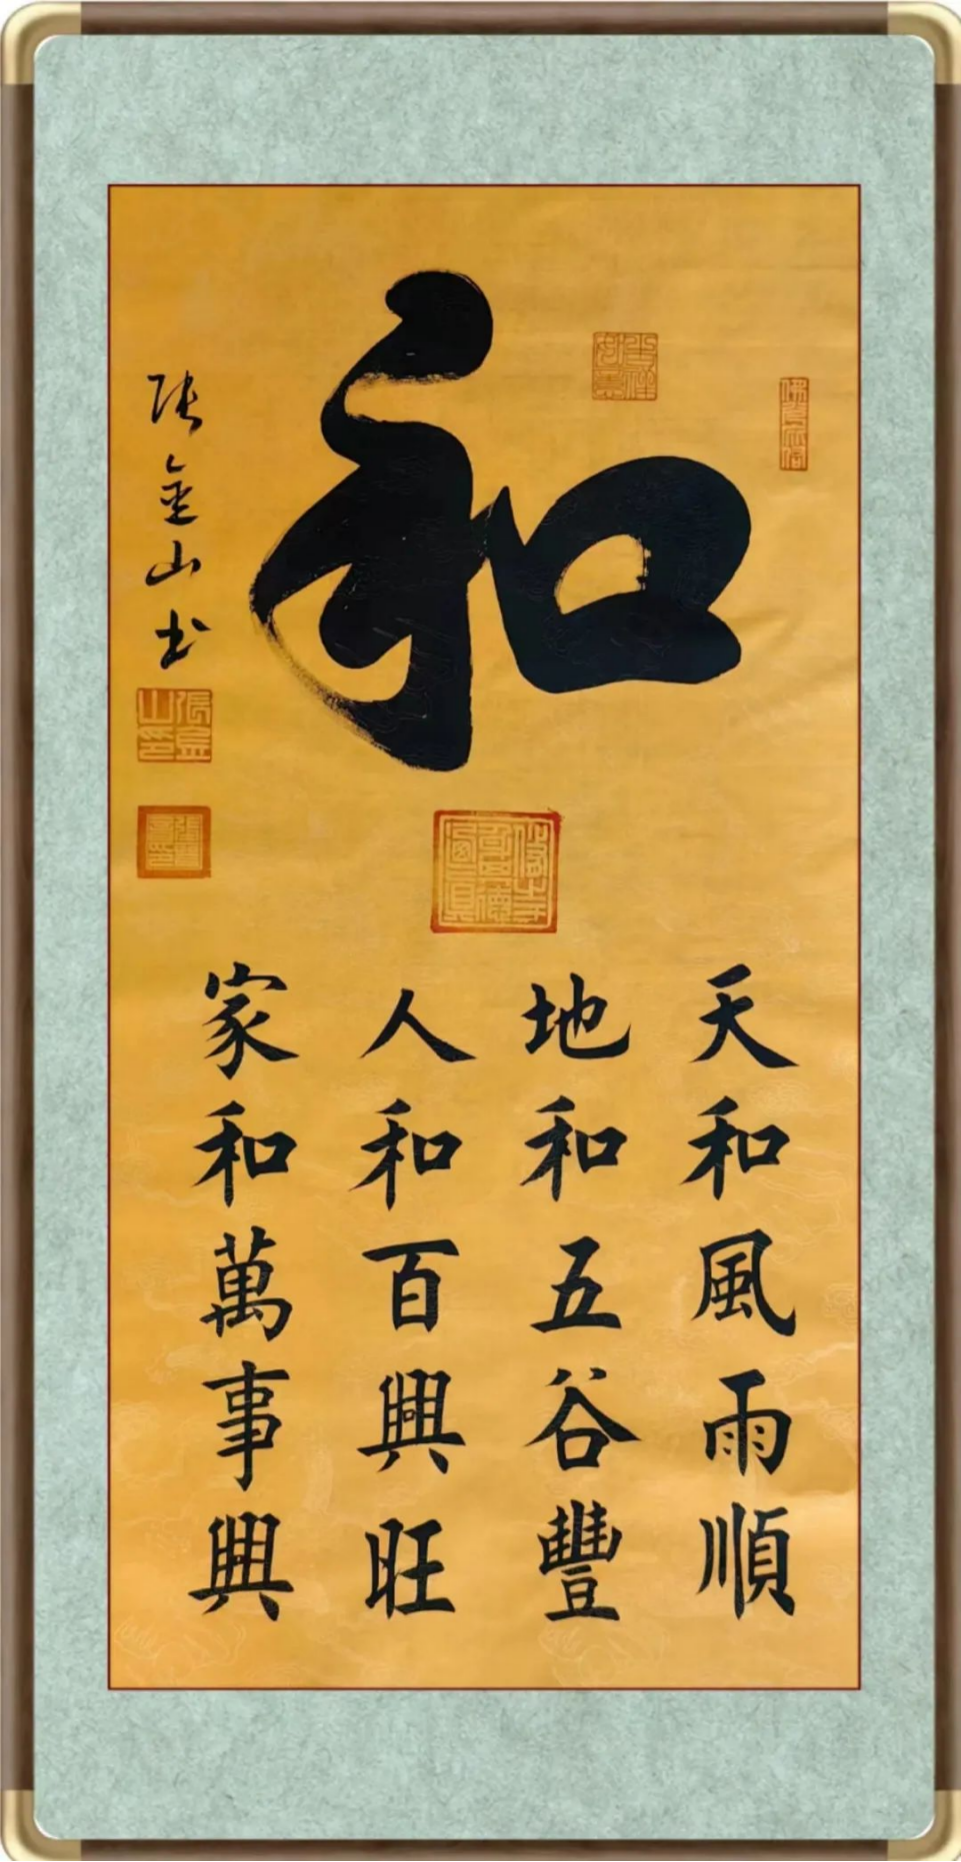 和
天和風雨順
地和五谷豐
人和百興旺
家和萬事興
张金山书
張金山印